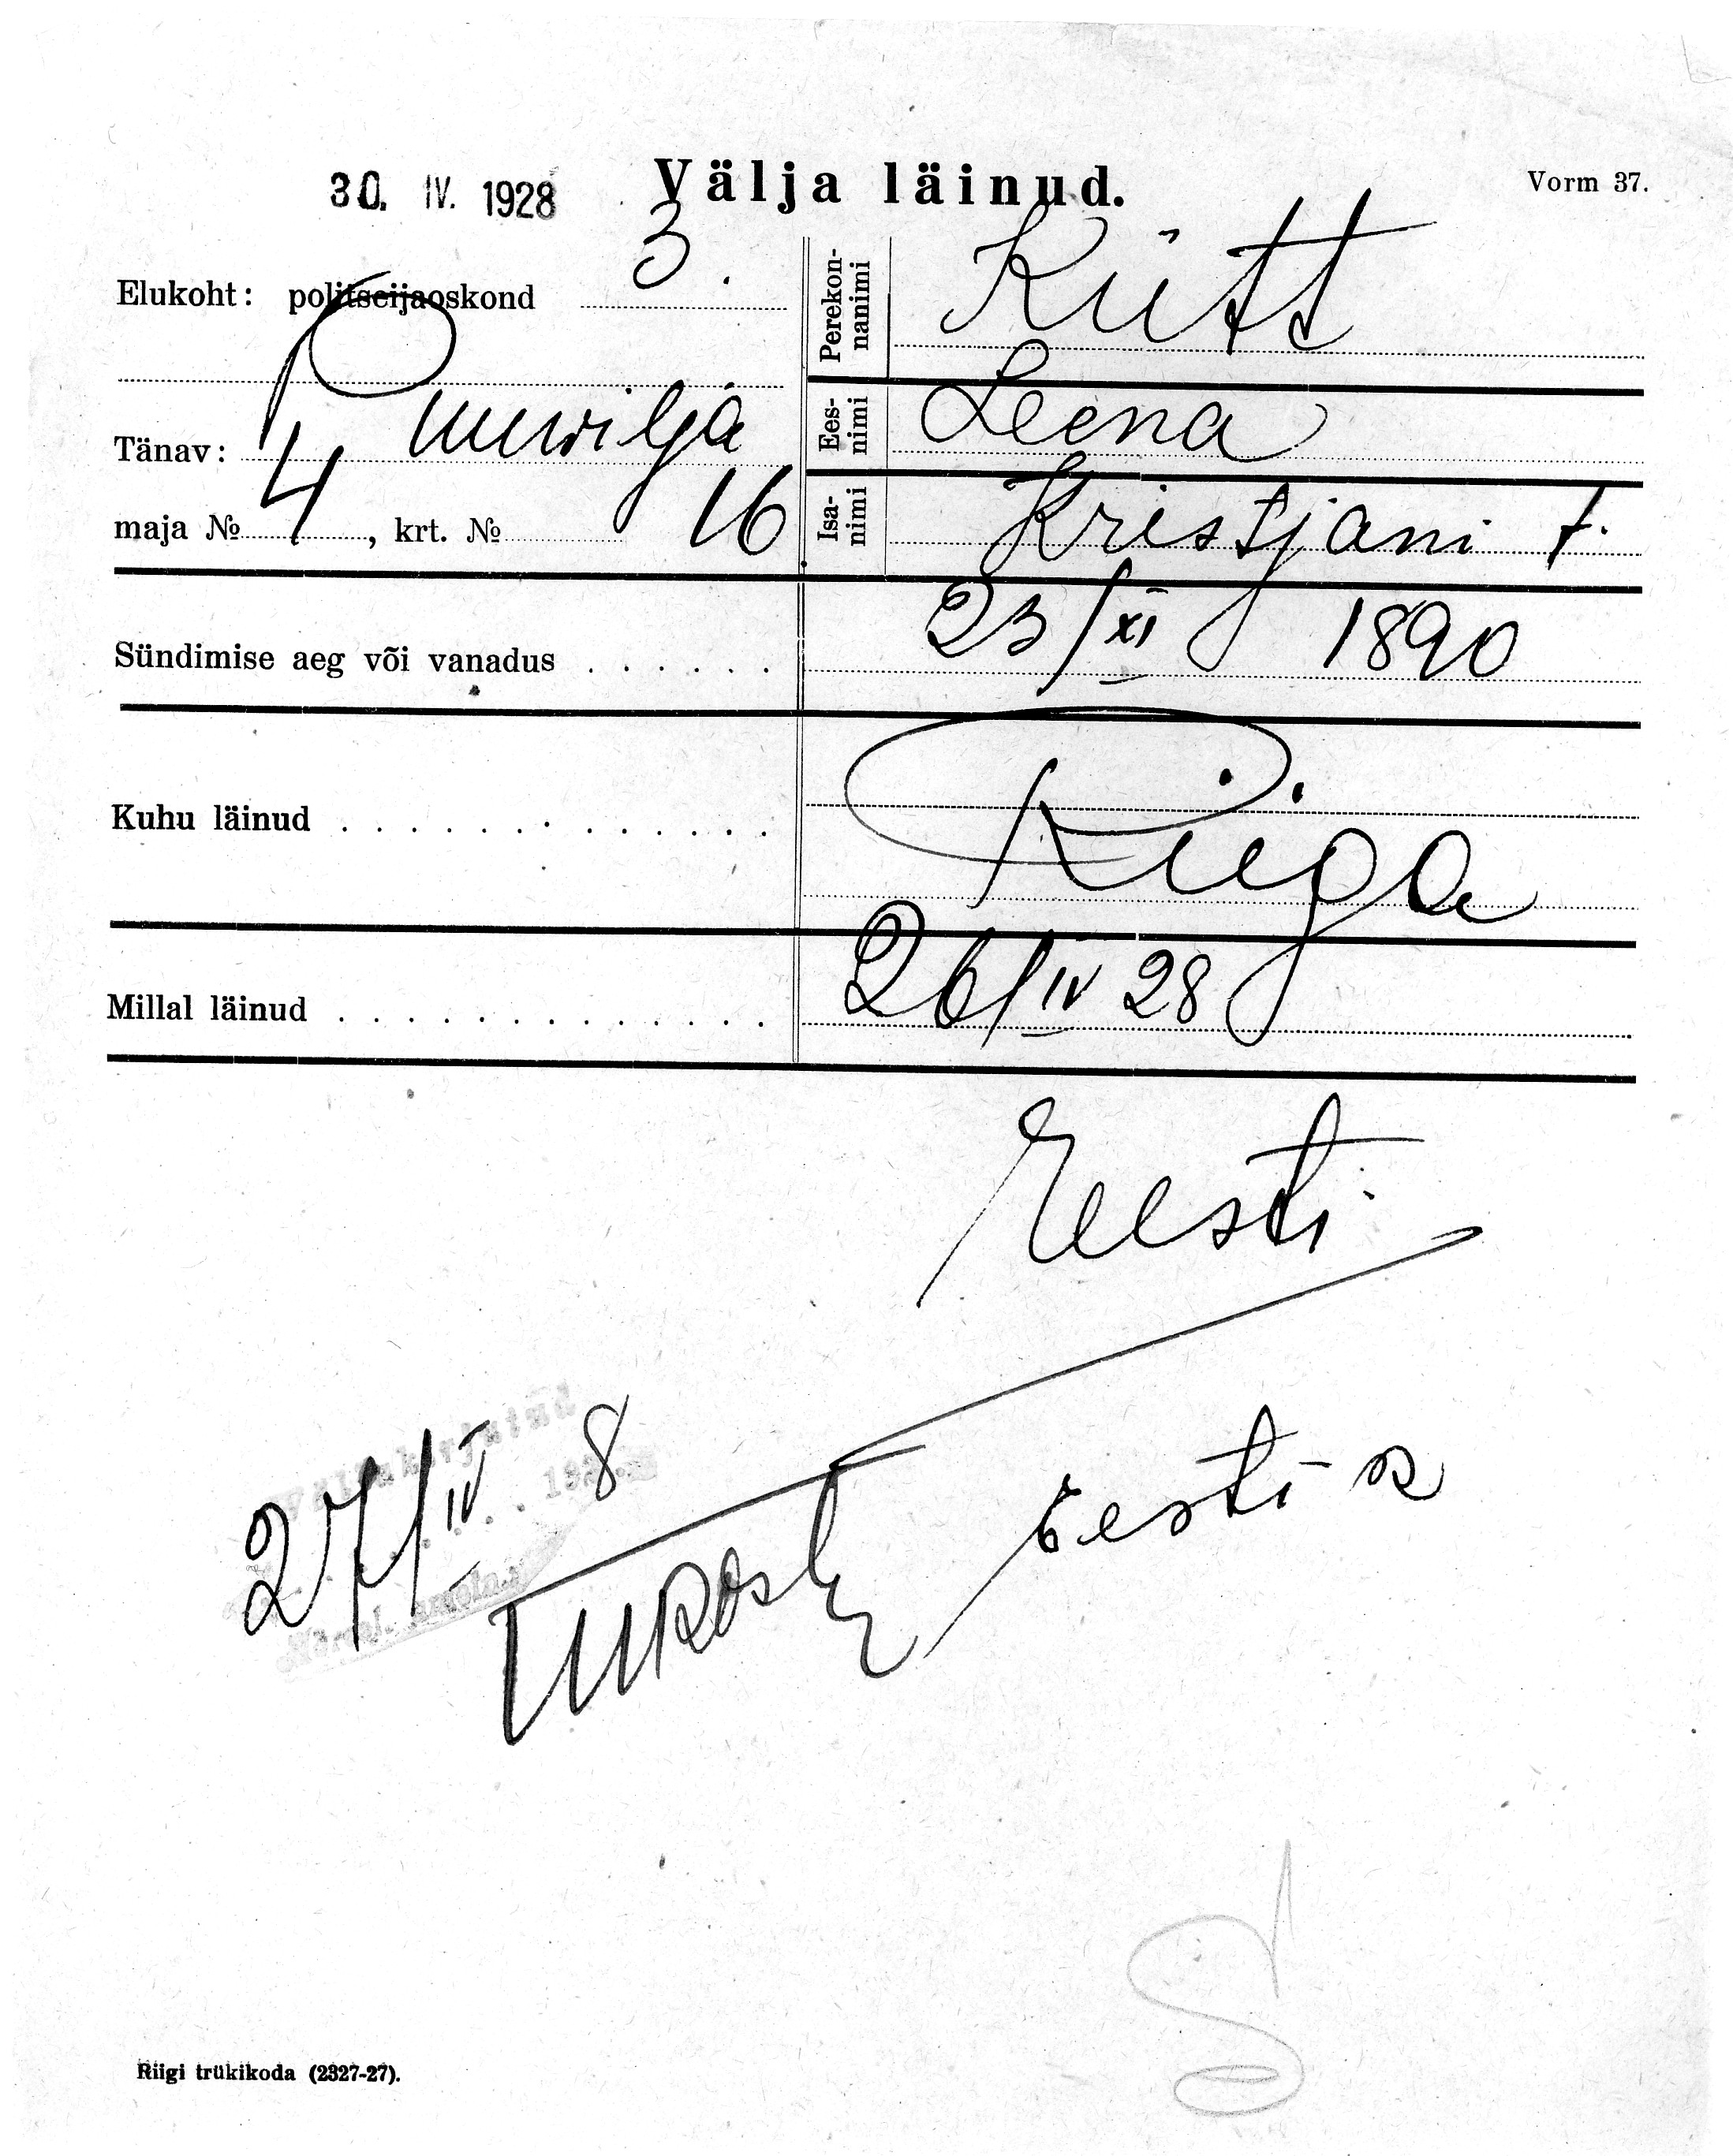 30. IV. 1928
Välja läinud.
Vorm 37.
Elukoht: politseijaoskond 3.
Tänav: Puuvilja
maja № 4, krt. № 16
Perekon-
nanimi
Kütt
Ees-
nimi
Leena
Isa-
nimi
Kristjani t.
Sündimise aeg või vanadus
23/XI 1890
Kuhu läinud
Riiga
Millal läinud
26/IV 28
Eesti
Väljakirjutud
27/IV 8
Eesti
Riigi trükikoda (2327-27).